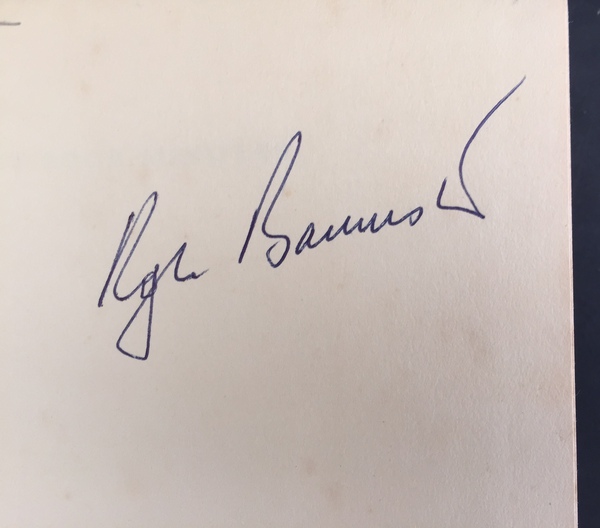 Roger Bannister